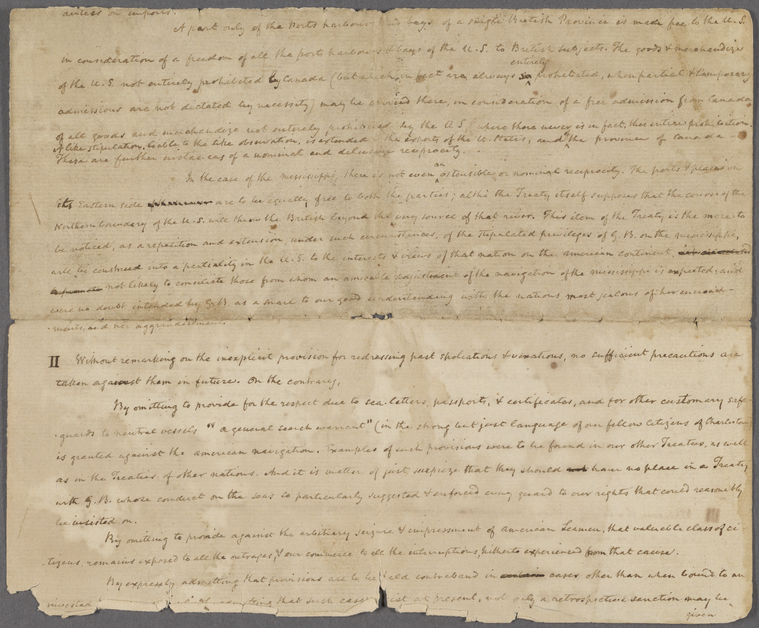 duties on imports.
A part only of the Ports harbours and bays of a single British Province is made free to the U.S.
in consideration of a freedom of all the ports harbours & bays of the U.S. to British subjects. The goods & merchandize
entirely
of the U.S. not entirely prohibited by Canada (but which in fact are always so prohibited, when partial & temporary
admissions are not dictated by necessity) may be carried there, in consideration of a free admission from Canada
of all goods and merchandize not entirely prohibited by the U.S. where there never is in fact, this entire prohibition.
A like stipulation, liable to the like observation, is extended to the exports of the U. States, and the province of Canada
These are further instances of a nominal and delusive reciprocity.
an
In the case of the Mississippi, there is not even ostensible or nominal reciprocity. The ports & places on
its Eastern side are to be equally free to both the parties; altho' the Treaty itself supposes that the course of the
Northern boundary of the U.S. will throw the British beyond the very source of that river. This item of the Treaty is the more to
be noticed, as a repetition and extension, under such circumstances, of the stipulated privileges of G.B. on the Mississippi,
will be construed into a partiality in the U.S. to the interests & views of that nation on the American continent,
not likely to conciliate those from whom an amicable adjustment of the navigation of the Mississippi is expected; and
were no doubt intended by G.B. as a snare to our good understanding with the nations most jealous of her encroach-
ments, and her aggrandizement.
II Without remarking on the inexplicit provision for redressing past spoliations & vexations, no sufficient precautions are
taken against them in future. On the contrary,
By omitting to provide for the respect due to sea-letters, passports, & certificates, and for other customary safe-
guards to neutral vessels "a general search warrant" (in the strong but just language of our fellow citizens of Charleston)
is granted against the American navigation. Examples of such provisions were to be found in our other Treaties, as well
as in the Treaties of other nations. And it is matter of just surprize that they should have no place in a Treaty
with G.B. whose conduct on the seas so particularly suggested & enforced every guard to our rights that could reasonably
be insisted on.
By omitting to provide against the arbitrary seizure & impressment of American Seamen, that valuable class of ci-
tizens, remains exposed to all the outrages, & our commerce to all the interruptions, hitherto experienced from that cause.
By expressly admitting that provisions are to be held contraband in cases other than when bound to an
invested at admitting that such cases exist at present, not only a retrospective sanction may be
given